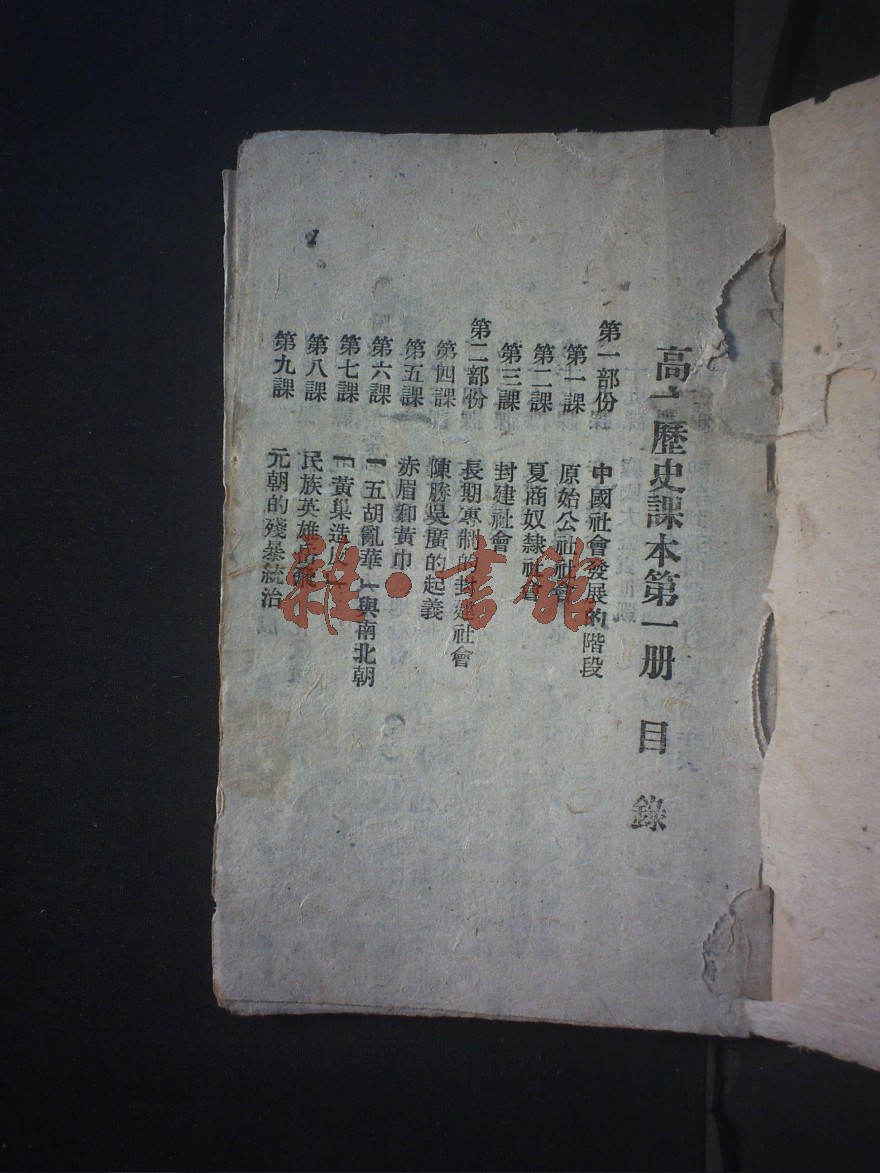 高立歷史課本第一册 目錄
第一部份 中國社會發展的階段
第一課 原始公社社會
第二課 夏商奴隸社會
第三課 封建社會
第二部份 長期專制的封建社會
第四課 陳勝吳廣的起義
第五課 赤眉和黃巾
第六課 「五胡亂華」與南北朝
第七課 「黃巢造反」
第八課 民族英雄岳飛
第九課 元朝的殘暴統治
雜·書館